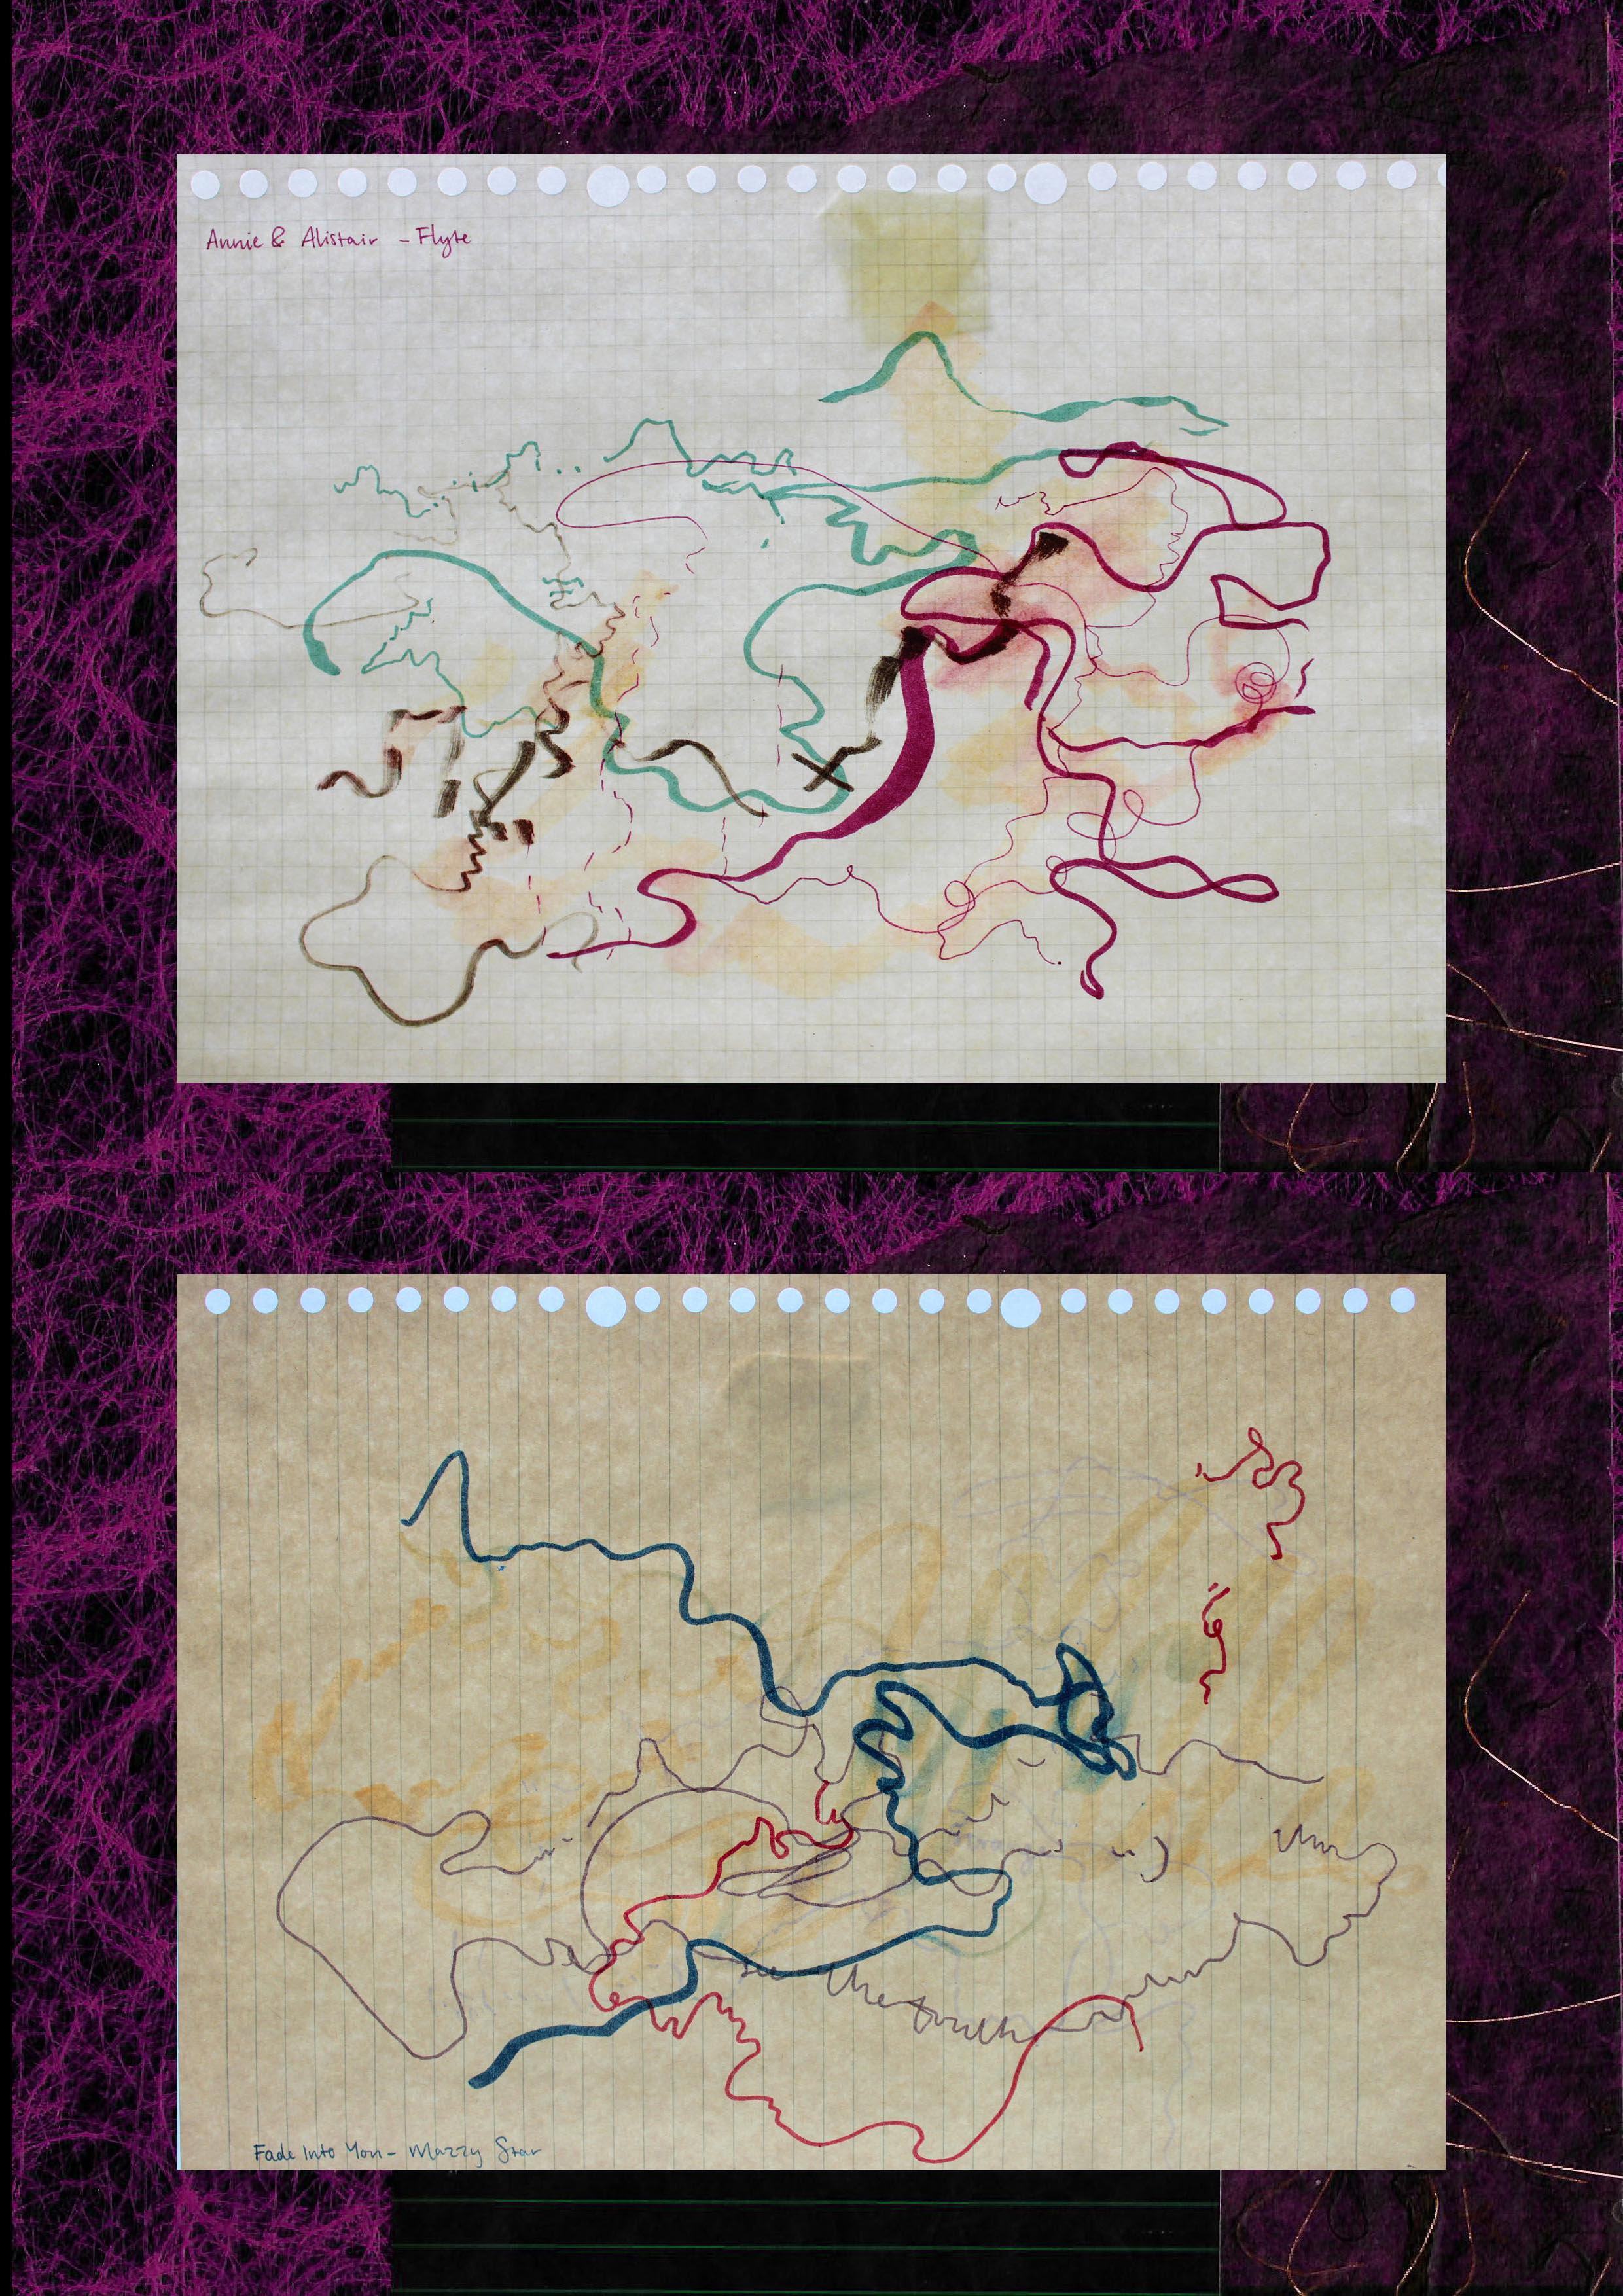 Annie & Alistair - Flyte
see the truth
Fade Into You - Mazzy Star